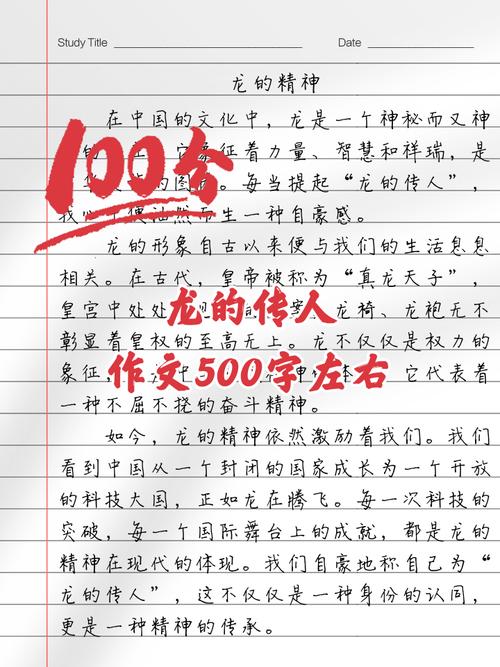 Study Title Date
龙的精神
在中国的文化中，龙是一个神秘而又神
的 它象征着力量、智慧和祥瑞，是
的图 。每当提起“龙的传人”，
我心 便油然而生一种自豪感。
100分
龙的形象自古以来便与我们的生活息息
相关。在古代，皇帝被称为“真龙天子”，
皇宫中处处 龙椅、龙袍无不
龙的传人
彰显着皇权的至高无上。龙不仅仅是权力的
象征， 中 它代表着
作文500字左右
一种不屈不挠的奋斗精神。
如今，龙的精神依然激励着我们。我们
看到中国从一个封闭的国家成长为一个开放
的科技大国，正如龙在腾飞。每一次科技的
突破，每一个国际舞台上的成就，都是龙的
精神在现代的体现。我们自豪地称自己为“
龙的传人”，这不仅仅是一种身份的认同，
更是一种精神的传承。